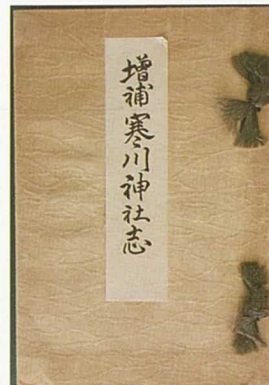 増補寒川神社志